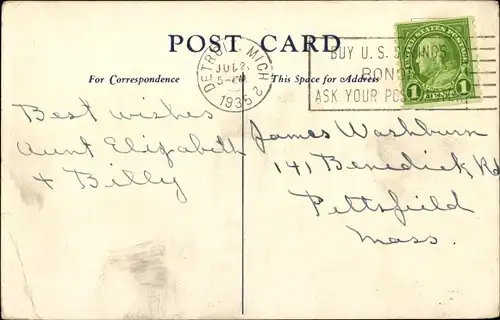 POST CARD
For Correspondence
This Space for Address
DETROIT, MICH 2
JUL 2
5-PM
1935
BUY U.S. SAVINGS
BONDS
ASK YOUR POS
UNITED STATES POSTAGE
1 CENT 1
Best wishes
Aunt Elizabeth
+ Billy
James Washburn
141 Benedick Rd
Pittsfield
Mass.